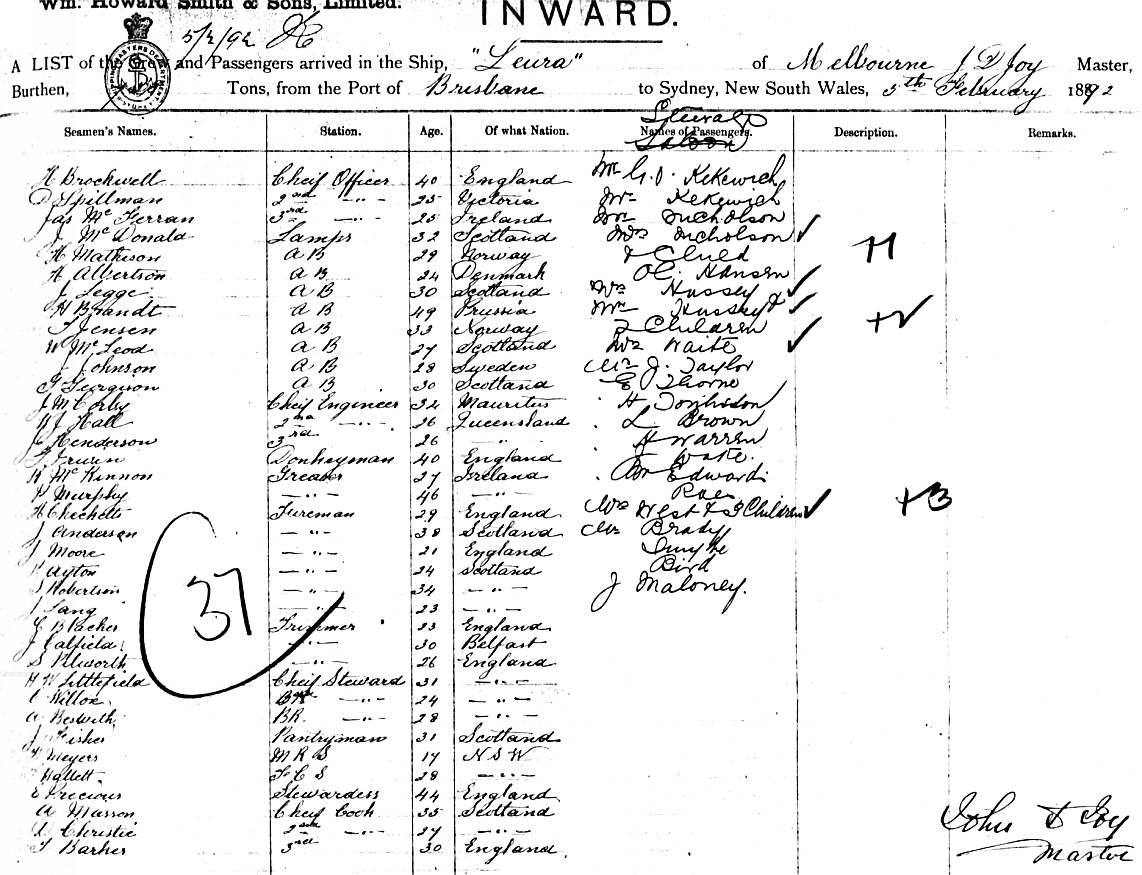 Wm. Howard Smith & Sons, Limited.
INWARD.
5/2/92
A LIST of the Crew and Passengers arrived in the Ship, "Leura" of Melbourne J D Joy Master,
Burthen, Tons, from the Port of Brisbane to Sydney, New South Wales, 5th February 1892
Steerage
Seamen's Names. Station. Age. Of what Nation. Names of Passengers. Description. Remarks.
Saloon
H Brockwell Cheif Officer 40 England Mr G.O. Kekewich
D Spillman 2nd —"— 25 Victoria Mr Kekewich
Jas Mc Ferran 3rd —"— 25 Ireland Mr Nicholson
J Mc Donald Lamps 32 Scotland Mrs Nicholson ✓
H Mathison A B 29 Norway & Child +1
A Albertson A B 24 Denmark Hansen
J Legge A B 30 Scotland Mrs Hussey ✓
H Brandt A B 49 Prussia Mrs Hussey & ✓
J Jensen A B 33 Norway 2 Children +2
W Mc Leod A B 27 Scotland Mrs Waite ✓
J Johnson A B 28 Sweden Mr J. Taylor
G Ferguson A B 30 Scotland E Thorne
J McCorby Cheif Engineer 32 Mauritus H Tomlinson
W J Hall 2nd —"— 26 Queensland L Brown
J Henderson 3rd 26 —"— H Warren
Donkeyman 40 England Wake.
H Mc Kinnon Greaser 27 Ireland Wm Edward
P Murphy —"— 46 —"— Rae
H Chechetts Fireman 29 England Mrs West & 3 Children ✓ +3
J Anderson —"— 38 Scotland Mr Brady
J Moore —"— 21 England Smythe
P Ayton —"— 24 Scotland Bird
J Robertson —"— 34 —"— J Maloney.
J Lang —"— 23 —"—
37
C Blacher Trimmer 23 England
J Calfield —"— 30 Belfast
S Pilworth —"— 26 England
H W Littlefield Cheif Steward 31 —"—
C Willox —"— 24 —"—
A Beswith BR. —"— 28 —"—
J Fisher Pantryman 31 Scotland
H Meyers M R S 17 N S W
Hallett F C S 28 —"—
E Precious Stewardess 44 England
A Marson Cheif Cook 35 Scotland
A Christie 2nd —"— 27 —"—
T Barker 3rd 30 England
John D Joy
Master